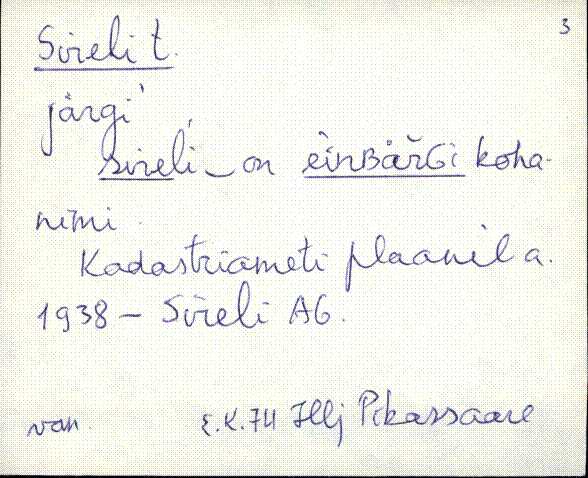 3
Sireli t.
järgi
sireli on èìnʙäřGi koha-
nimi.
Kadastriameti plaanil a.
1938 – Sireli A6.
van. E.K.74 Illj Pikassaare